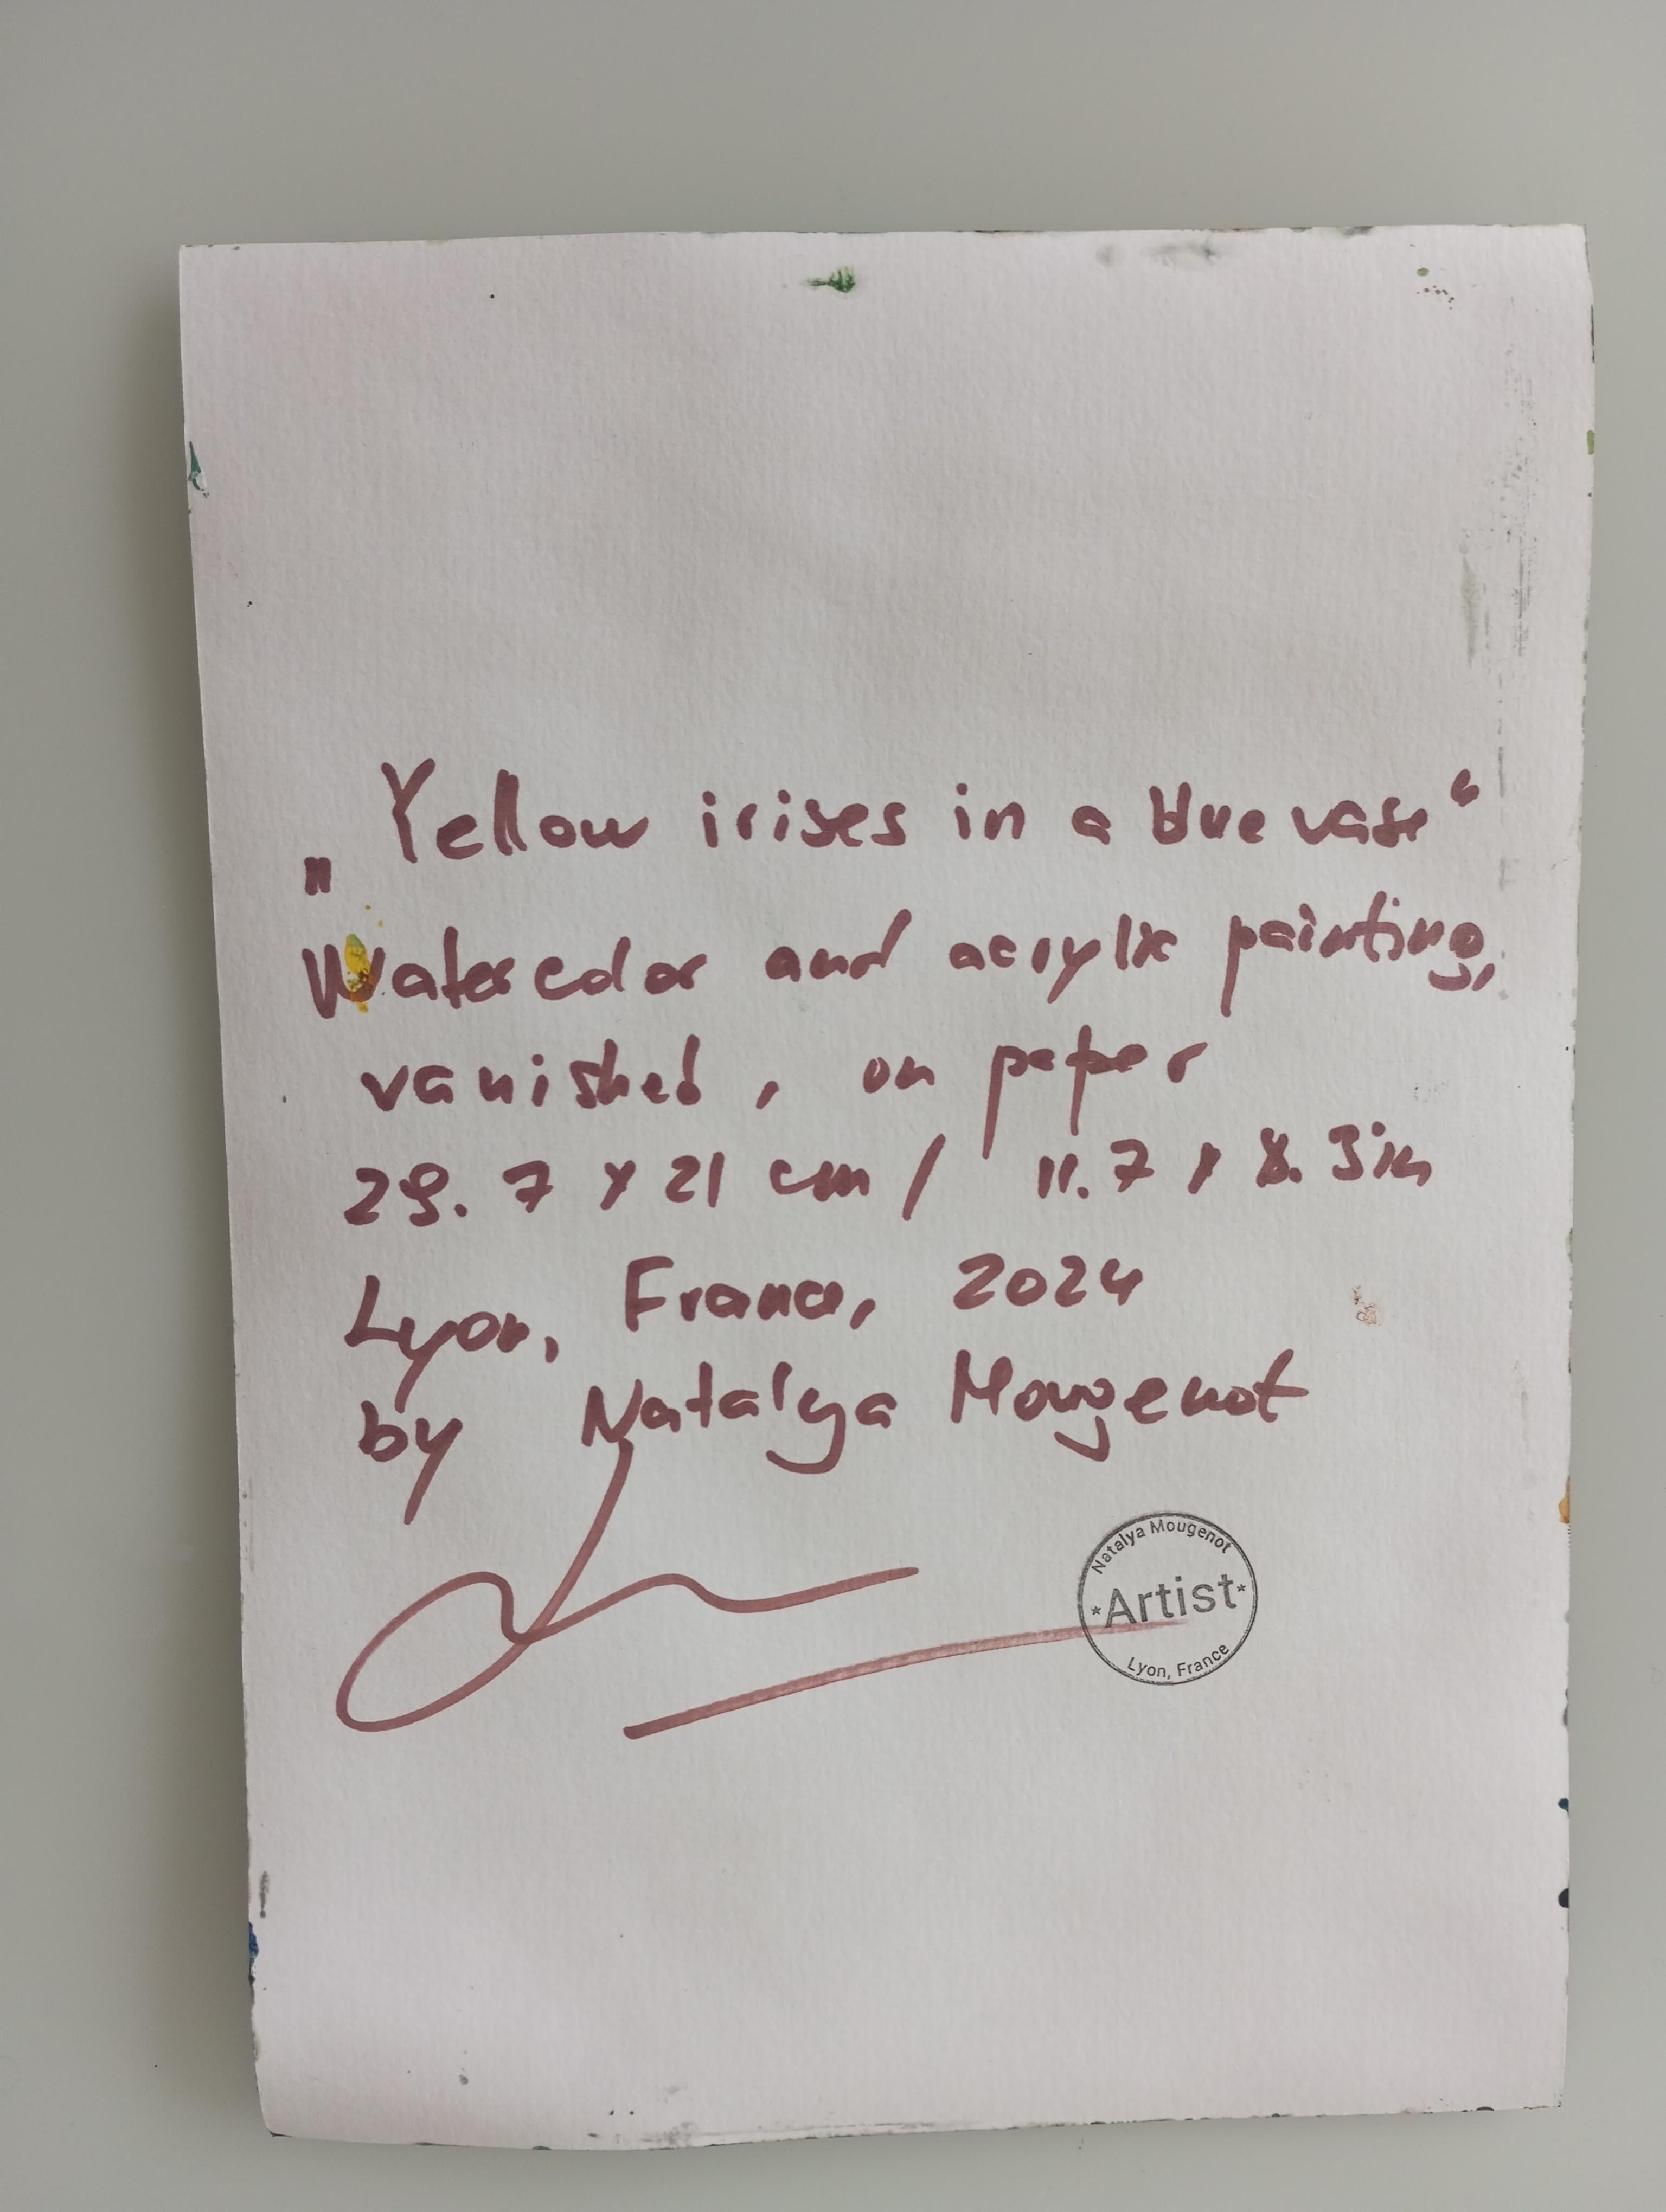 „Yellow irises in a blue vase“
Watercolor and acrylic painting,
vanished, on paper
29.7 x 21 cm / 11.7 x 8.3in
Lyon, France, 2024
by Natalya Mougenot
Natalya Mougenot
*Artist*
Lyon, France